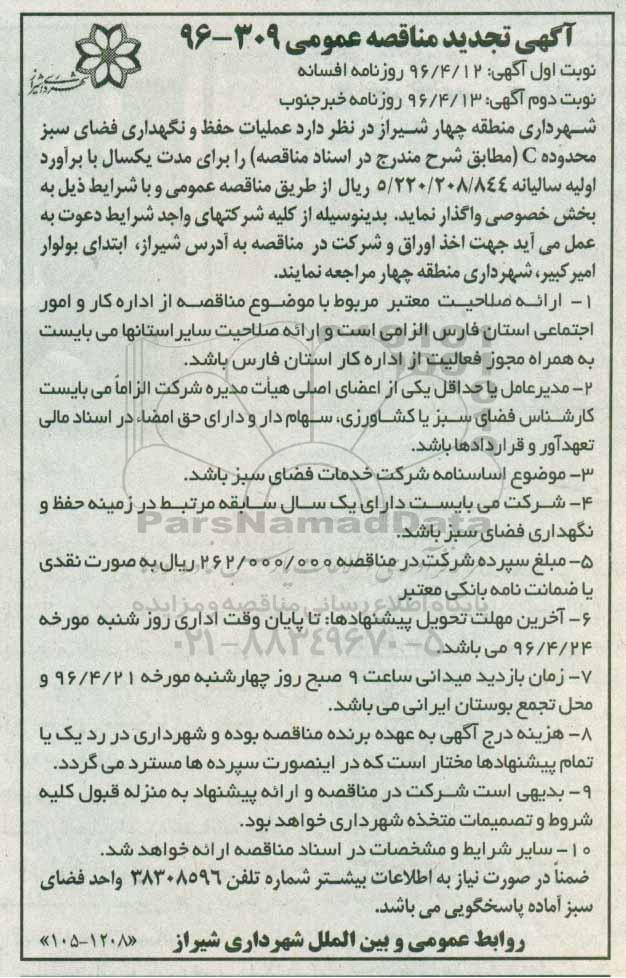 آگهی تجدید مناقصه عمومی ۳۰۹-۹۶
شهرداری شیراز
نوبت اول آگهی: ۹۶/۴/۱۲ روزنامه افسانه
نوبت دوم آگهی: ۹۶/۴/۱۳ روزنامه خبرجنوب
شهرداری منطقه چهار شیراز در نظر دارد عملیات حفظ و نگهداری فضای سبز
محدوده C (مطابق شرح مندرج در اسناد مناقصه) را برای مدت یکسال با برآورد
اولیه سالیانه ۵/۲۲۰/۲۰۸/۸۴۴ ریال از طریق مناقصه عمومی و با شرایط ذیل به
بخش خصوصی واگذار نماید. بدینوسیله از کلیه شرکتهای واجد شرایط دعوت به
عمل می آید جهت اخذ اوراق و شرکت در مناقصه به آدرس شیراز، ابتدای بولوار
امیرکبیر، شهرداری منطقه چهار مراجعه نمایند.
۱- ارائه صلاحیت معتبر مربوط با موضوع مناقصه از اداره کار و امور
اجتماعی استان فارس الزامی است و ارائه صلاحیت سایر استانها می بایست
به همراه مجوز فعالیت از اداره کار استان فارس باشد.
۲- مدیرعامل یا حداقل یکی از اعضای اصلی هیأت مدیره شرکت الزاماً می بایست
کارشناس فضای سبز یا کشاورزی، سهام دار و دارای حق امضاء در اسناد مالی
تعهدآور و قراردادها باشد.
۳- موضوع اساسنامه شرکت خدمات فضای سبز باشد.
۴- شرکت می بایست دارای یک سال سابقه مرتبط در زمینه حفظ و
ParsNamadData
نگهداری فضای سبز باشد.
۵- مبلغ سپرده شرکت در مناقصه ۲۶۲/۰۰۰/۰۰۰ ریال به صورت نقدی
یا ضمانت نامه بانکی معتبر
پایگاه اطلاع رسانی مناقصه و مزایده
۶- آخرین مهلت تحویل پیشنهادها: تا پایان وقت اداری روز شنبه مورخه
۹۶/۴/۲۴ می باشد.
۰۲۱-۸۸۳۴۹۶۷۰-۵
۷- زمان بازدید میدانی ساعت ۹ صبح روز چهارشنبه مورخه ۹۶/۴/۲۱ و
محل تجمع بوستان ایرانی می باشد.
۸- هزینه درج آگهی به عهده برنده مناقصه بوده و شهرداری در رد یک یا
تمام پیشنهادها مختار است که در اینصورت سپرده ها مسترد می گردد.
۹- بدیهی است شرکت در مناقصه و ارائه پیشنهاد به منزله قبول کلیه
شروط و تصمیمات متخذه شهرداری خواهد بود.
۱۰- سایر شرایط و مشخصات در اسناد مناقصه ارائه خواهد شد.
ضمناً در صورت نیاز به اطلاعات بیشتر شماره تلفن ۳۸۳۰۸۵۹۶ واحد فضای
سبز آماده پاسخگویی می باشد.
روابط عمومی و بین الملل شهرداری شیراز «۱۰۵-۱۲۰۸»